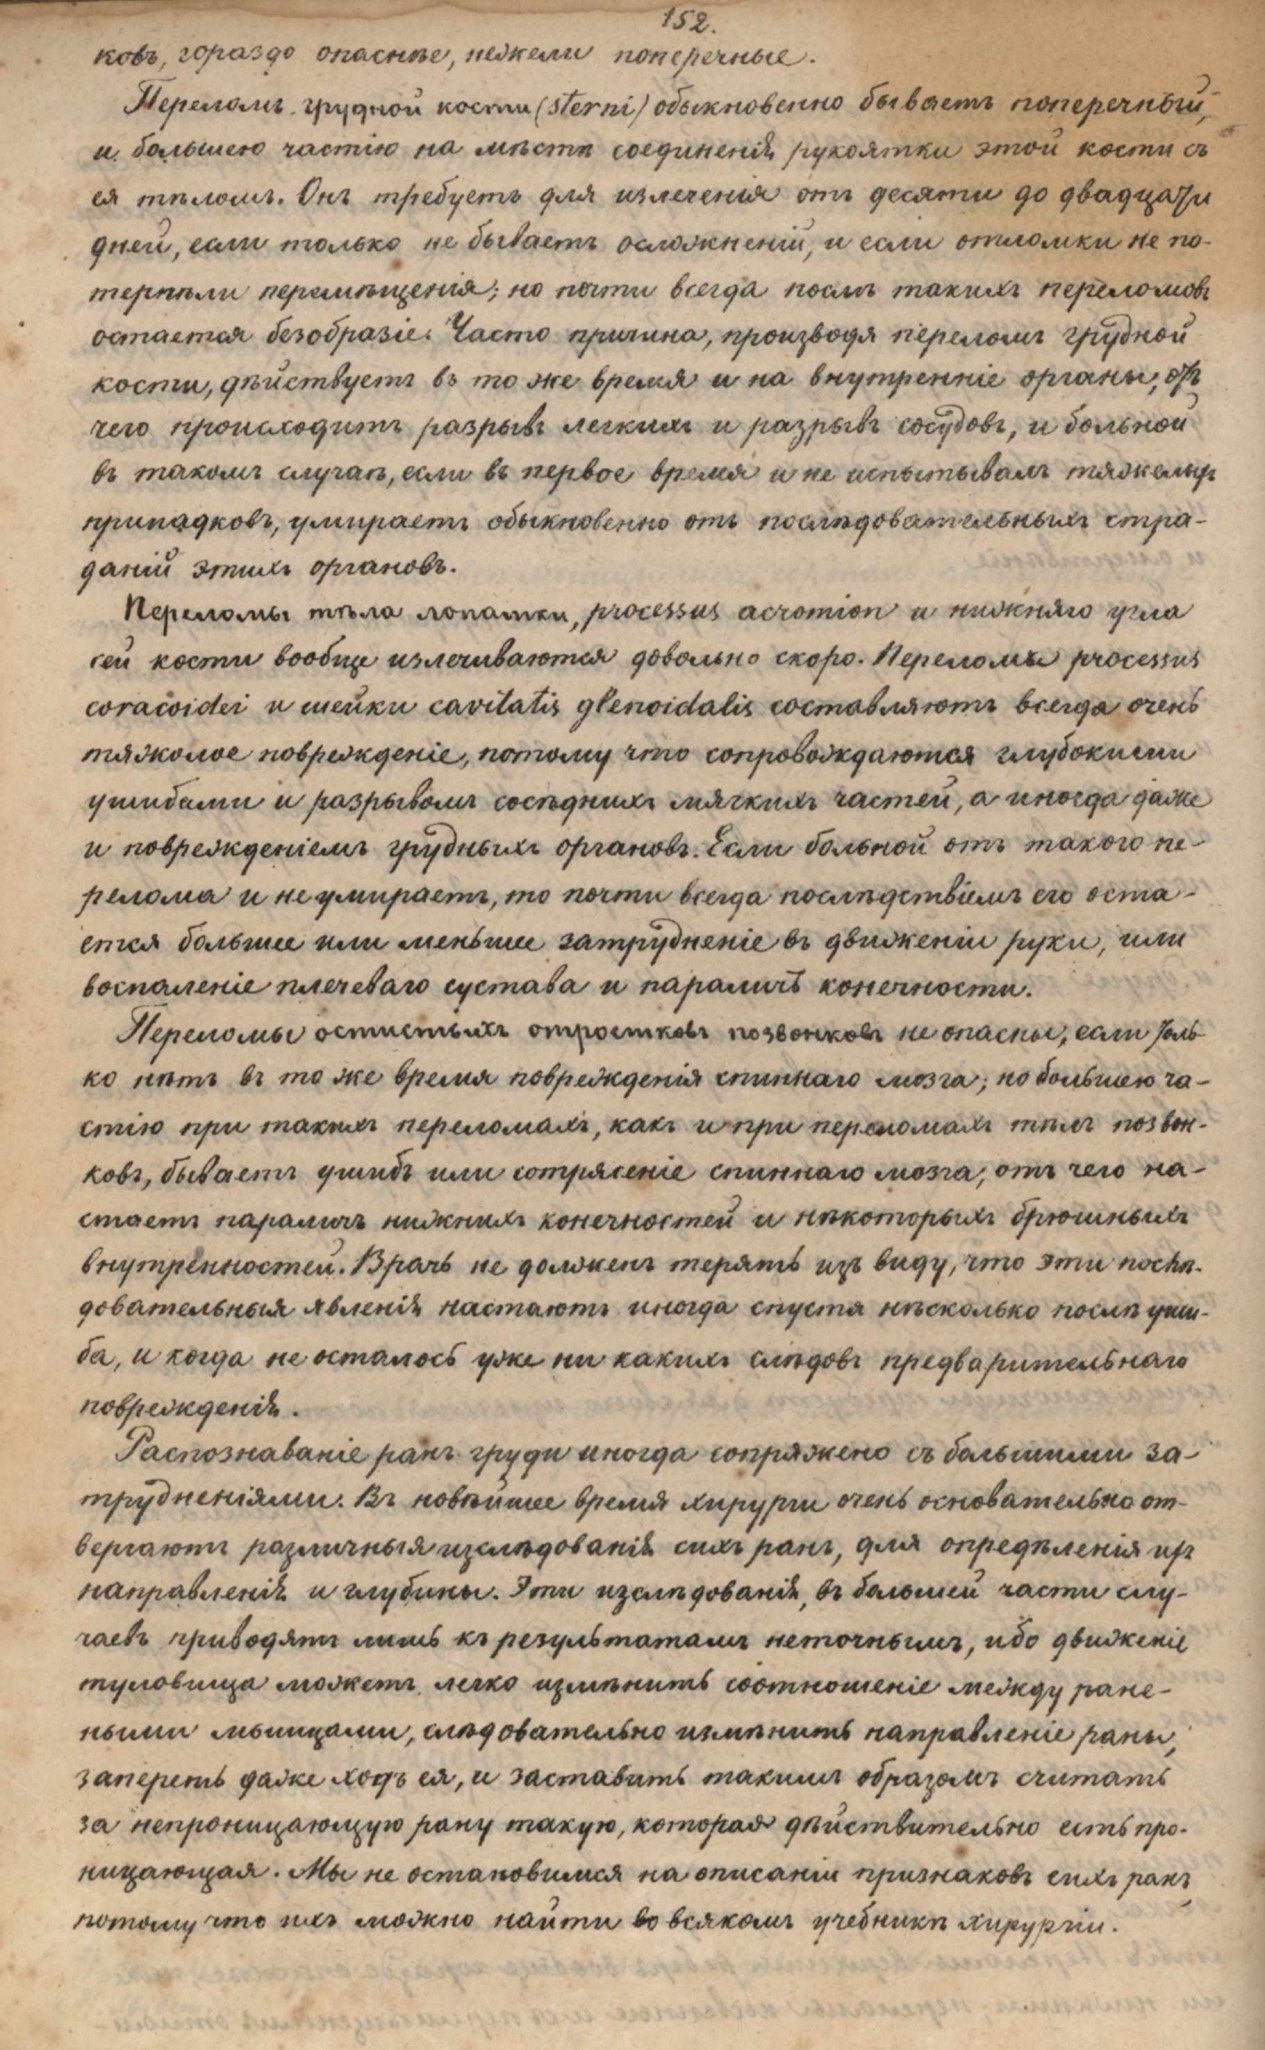 152.
ковъ, гораздо опаснѣе, нежели поперечные.
Переломъ грудной кости (sterni) обыкновенно бываетъ поперечный,
и большею частію на мѣстѣ соединенія рукоятки этой кости съ
ея тѣломъ. Онъ требуетъ для излеченія отъ десяти до двадцати
дней, если только не бываетъ осложненій, и если отломки не по-
терпѣли перемѣщенія; но почти всегда послѣ такихъ переломовъ
остается безобразіе. Часто причина, производя переломъ грудной
кости, дѣйствуетъ въ то же время и на внутренніе органы, отъ
чего происходитъ разрывъ легкихъ и разрывъ сосудовъ, и больной
въ такомъ случаѣ, если въ первое время и не испытывалъ тяжелыхъ
припадковъ, умираетъ обыкновенно отъ послѣдовательныхъ стра-
даній этихъ органовъ.
Переломы тѣла лопатки, processus acromion и нижняго угла
сей кости вообще излечиваются довольно скоро. Переломы processus
coracoidei и шейки cavitatis glenoidalis составляютъ всегда очень
тяжолое поврежденіе, потому что сопровождаются глубокими
ушибами и разрывомъ сосѣднихъ мягкихъ частей, а иногда даже
и поврежденіемъ грудныхъ органовъ. Если больной отъ такого пе-
релома и не умираетъ, то почти всегда послѣдствіемъ его оста-
ется большее или меньшее затрудненіе въ движеніи руки, или
воспаленіе плечеваго сустава и параличъ конечности.
Переломы остистыхъ отростковъ позвонковъ не опасны, если толь-
ко нѣтъ въ то же время поврежденія спиннаго мозга; но большею ча-
стію при такихъ переломахъ, какъ и при переломахъ тѣлъ позвон-
ковъ, бываетъ ушибъ или сотрясеніе спиннаго мозга, отъ чего на-
стаетъ параличъ нижнихъ конечностей и нѣкоторыхъ брюшныхъ
внутренностей. Врачъ не долженъ терять изъ виду, что эти послѣ-
довательныя явленія настаютъ иногда спустя нѣсколько послѣ уши-
ба, и когда не осталось уже ни какихъ слѣдовъ предварительнаго
поврежденія.
Распознаваніе ранъ груди иногда сопряжено съ большими за-
трудненіями. Въ новѣйшее время хирурги очень основательно от-
вергаютъ различныя изслѣдованія сихъ ранъ, для опредѣленія ихъ
направленія и глубины. Эти изслѣдованія, въ большей части слу-
чаевъ приводятъ лишь къ результатамъ неточнымъ, ибо движеніе
туловища можетъ легко измѣнить соотношеніе между ране-
ными мышцами, слѣдовательно измѣнить направленіе раны,
запереть даже ходъ ея, и заставить такимъ образомъ считать
за непроницающую рану такую, которая дѣйствительно есть про-
ницающая. Мы не остановимся на описаніи признаковъ сихъ ранъ,
потому что ихъ можно найти во всякомъ учебникѣ хирургіи.